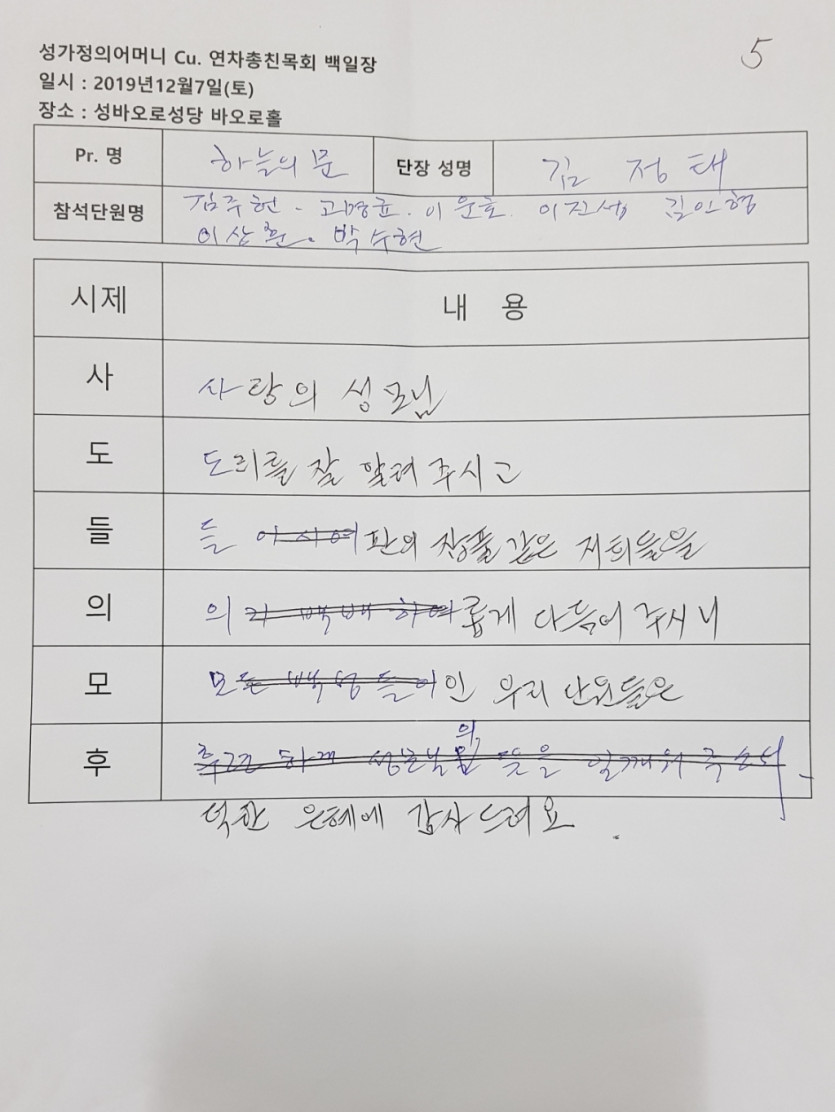 5
성가정의어머니 Cu. 연차총친목회 백일장
일시 : 2019년12월7일(토)
장소 : 성바오로성당 바오로홀
Pr. 명 하늘의 문 단장 성명 김 정 태
참석단원명 김주현 - 고명균 . 이윤호 . 이진세 김인형
이상훈 . 박수현
시제 내 용
사 사랑의 성모님
도 도리를 잘 알려 주시고
들 들 이시여 판의 잡풀 같은 저희들을
의 의리 백배 하여 롭게 다듬어 주시니
모 모든 백성들이 인 우리 단원들은
의
후 하게 성모님 뜻을 일깨워 주소서
덕한 은혜에 감사드려요 .